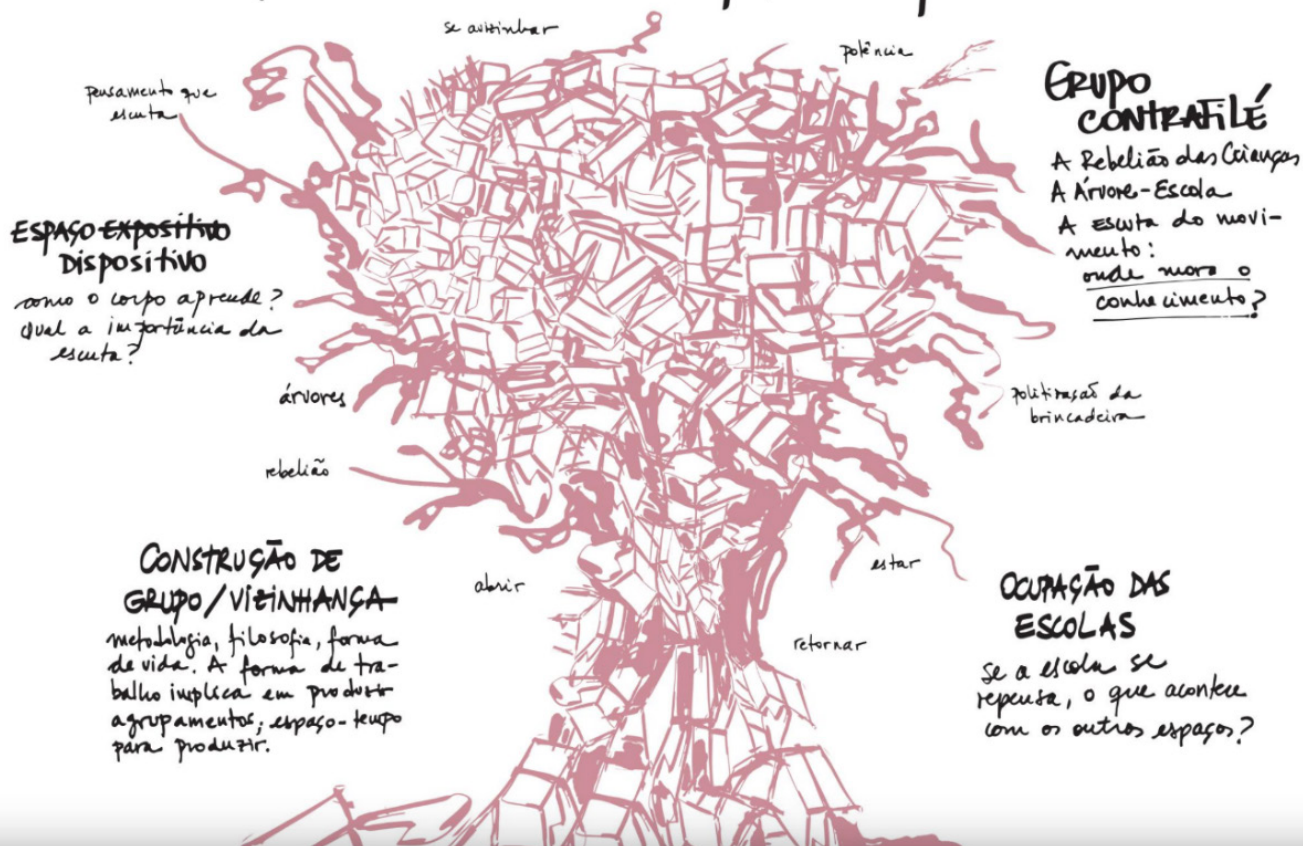 se avizinhar
potência
pensamento que
escuta
GRUPO
CONTRAFILÉ
A Rebelião das Crianças
A Árvore-Escola
A escuta do movi-
mento:
onde mora o
conhecimento?
ESPAÇO EXPOSITIVO
DISPOSITIVO
como o corpo aprende?
Qual a importância da
escuta?
árvores
politização da
brincadeira
rebelião
CONSTRUÇÃO DE
GRUPO/VIZINHANÇA
metodologia, filosofia, forma
de vida. A forma de tra-
balho implica em produzir
agrupamentos; espaço-tempo
para produzir.
abrir
estar
retornar
OCUPAÇÃO DAS
ESCOLAS
Se a escola se
repensa, o que acontece
com os outros espaços?